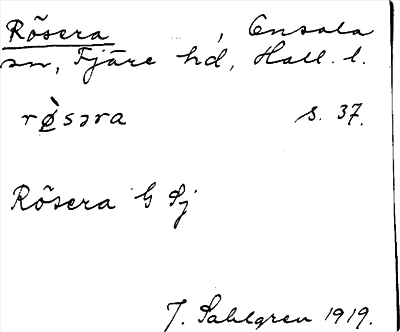 Rösera , Onsala
sn, Fjäre hd, Hall. l.
rø̀səra s. 37.
Rösera G Sj
J. Sahlgren 1919.